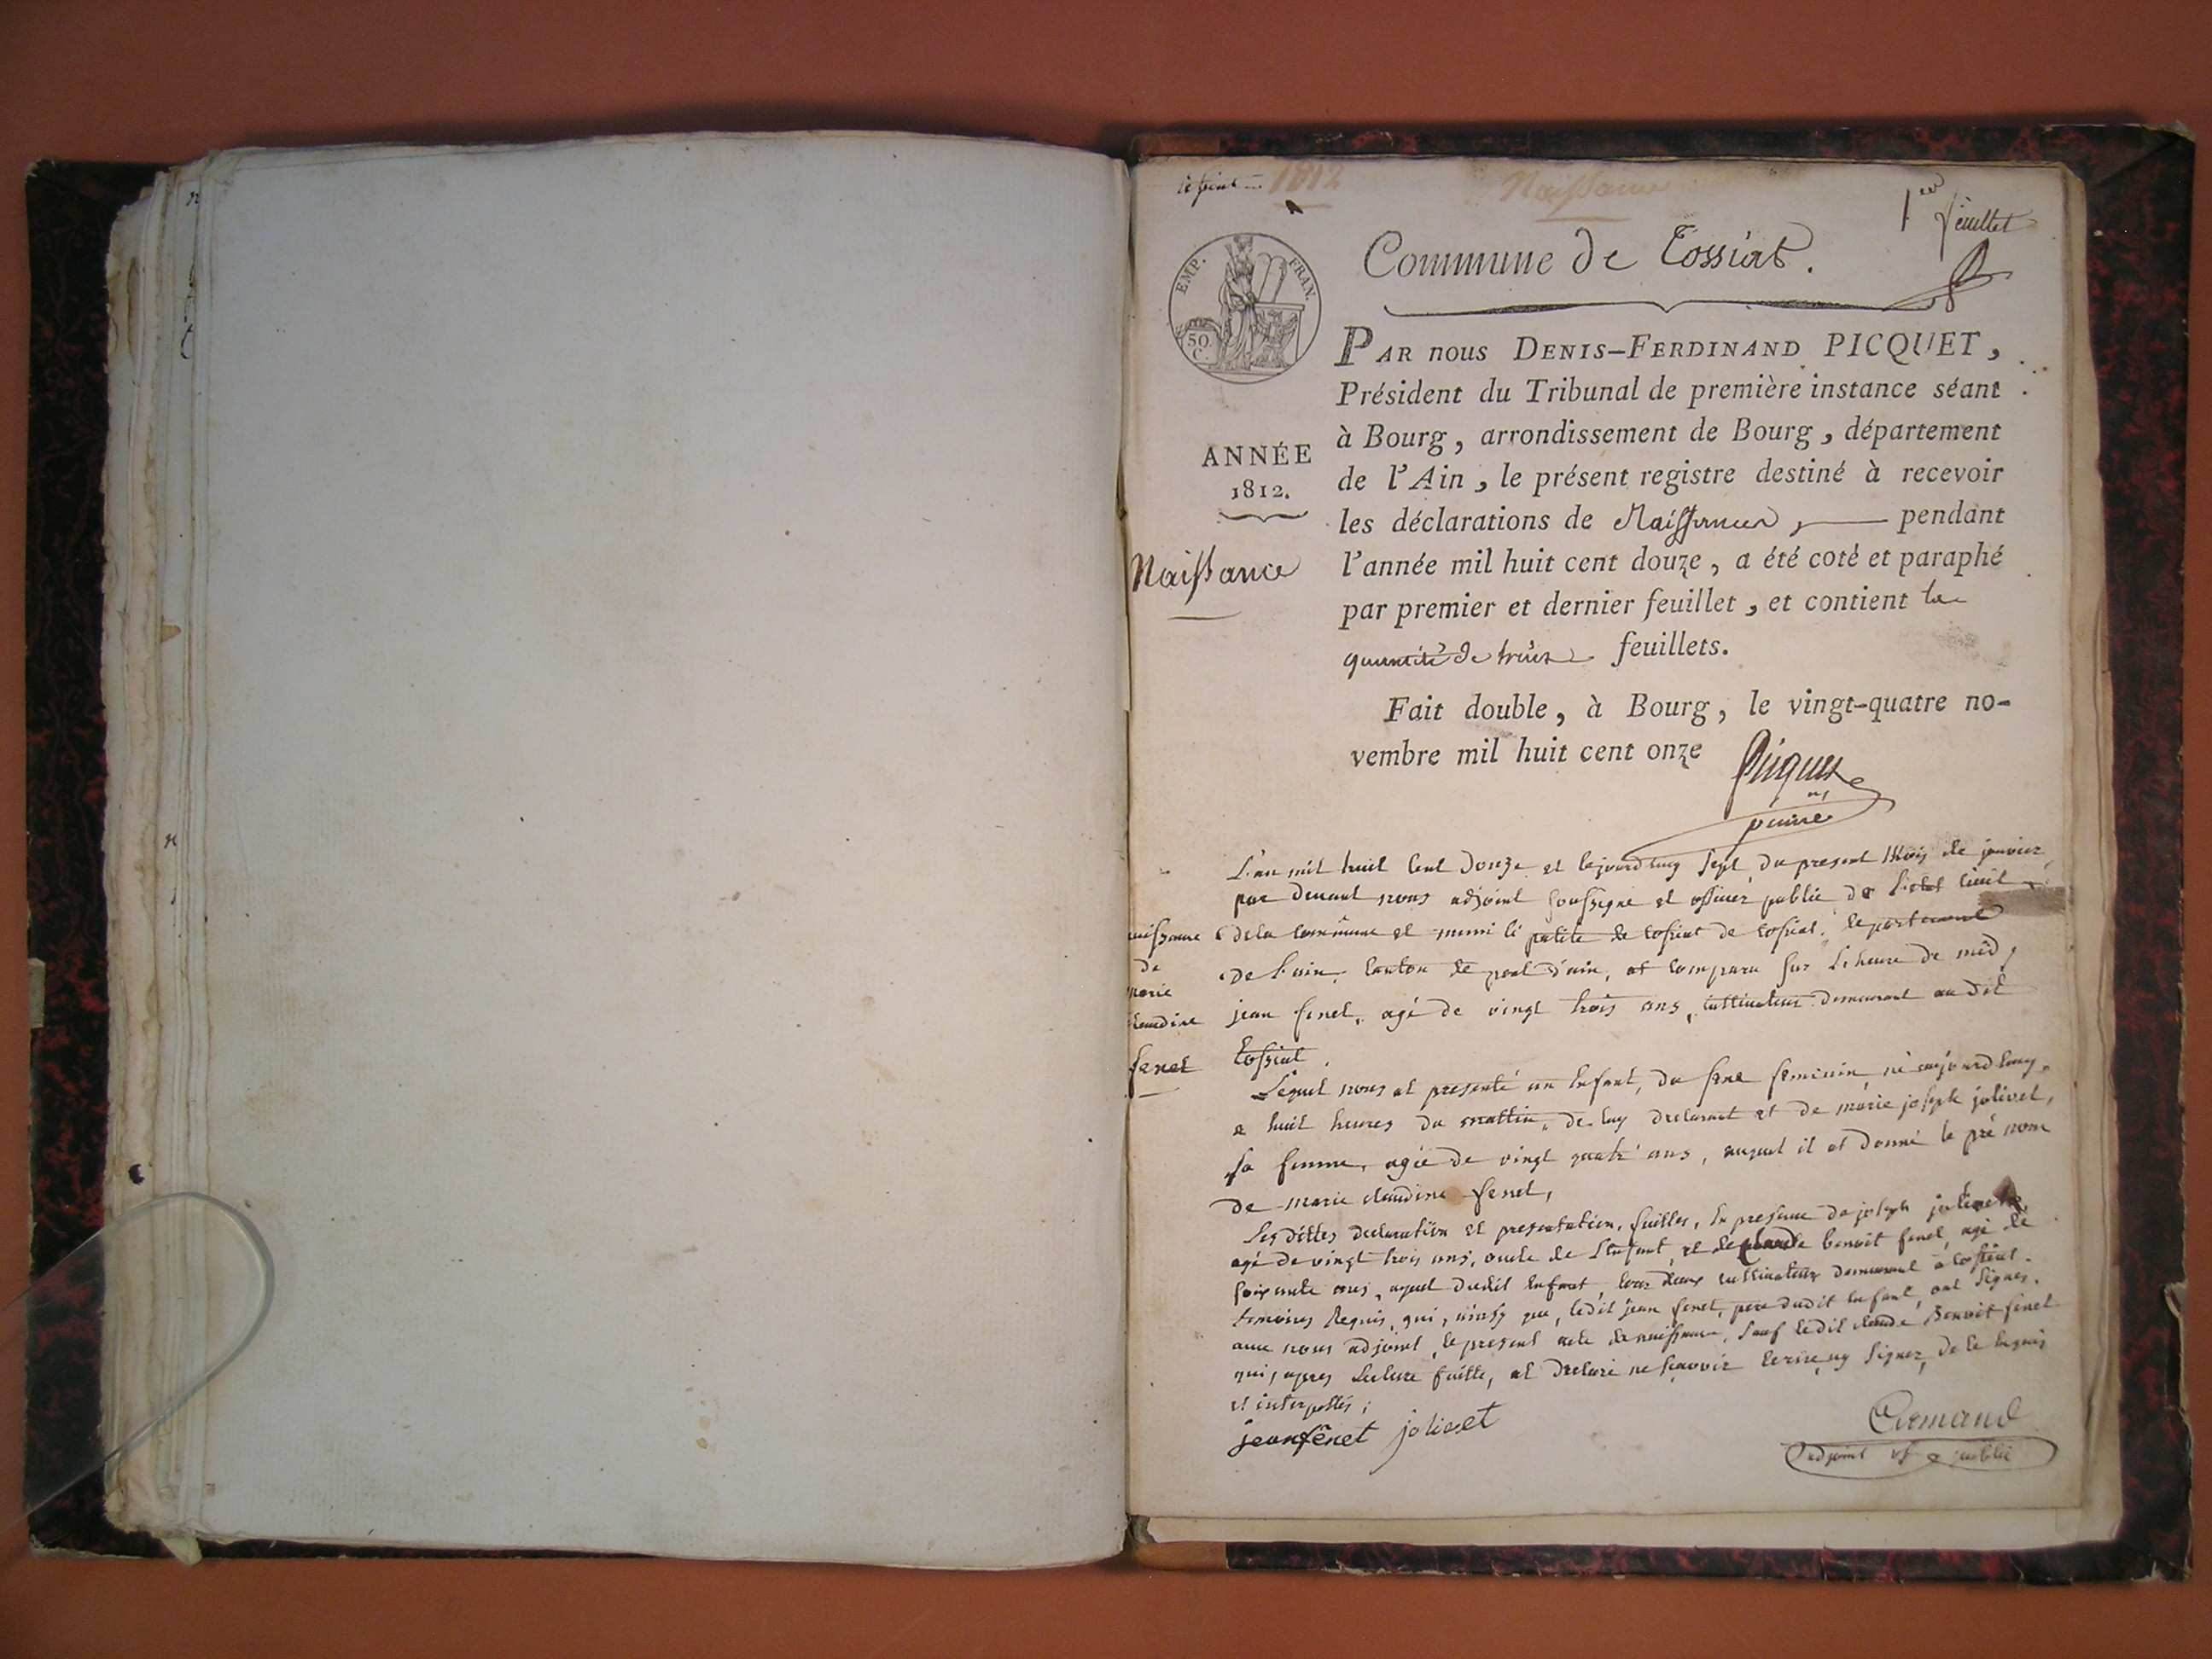 tossiat 1812
Naissance
1er feuillet
EMP. FRAN.
50. C.
Commune de Tossiat.
PAR nous DENIS-FERDINAND PICQUET,
Président du Tribunal de première instance séant
à Bourg, arrondissement de Bourg, département
de l'Ain, le présent registre destiné à recevoir
les déclarations de Naissances, pendant
l'année mil huit cent douze, a été coté et paraphé
par premier et dernier feuillet, et contient la
quantité de treize feuillets.
ANNÉE
1812.
Naissance
Fait double, à Bourg, le vingt-quatre no-
vembre mil huit cent onze
Picquet
naissance
de
marie
claudine
fenet
L'an mil huit cent douze et lejourdhuy sept du present mois de janvier,
par devant nous adjoint soussigné et officier public de l'etat civil
dela commune et de tossiat, departement
de l'ain, canton de pont d'ain, at comparu sur l'heure de midy
jean fenet, agé de vingt trois ans, cultivateur demeurant au dit
tossiat.
Lequel nous at presenté un enfant, du sexe feminin, né aujourdhuy,
a huit heures du mattin, de luy declarant et de marie joseph jolivet,
sa femme, agée de vingt quatre ans, auquel il at donné le pré nom
de marie claudine fenet,
Les dittes declaration et presentation, faittes, en presence de joseph jolivet
agé de vingt trois ans, oncle de l'enfant, et de claude benoit fenet, agé de
soixante ans, ayeul dudit enfant, tous deux cultivateurs demeurant a tossiat.
temoins requis, qui, ainsy que, ledit jean fenet, pere dudit enfant, ont signer.
avec nous adjoint, le present acte de naissance, sauf ledit claude Benoit fenet
qui, apres lecture faitte, at declaré ne scavoir ecrire, ny signer, de le requis
et interpellés;
jean fenet jolivet
adjoint of public